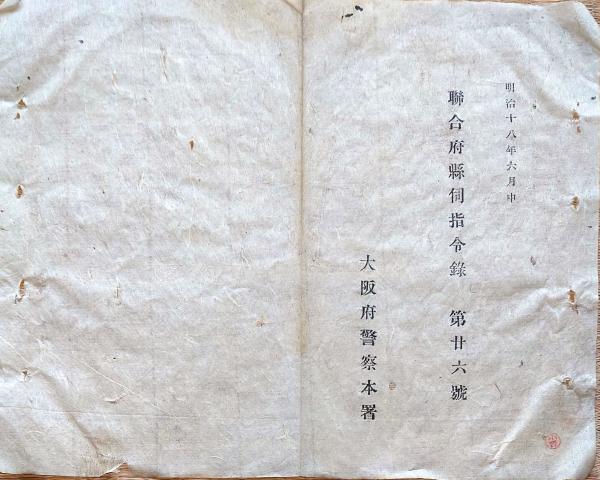 明治十八年六月中
聯合府縣伺指令錄　第廿六號
大阪府警察本署